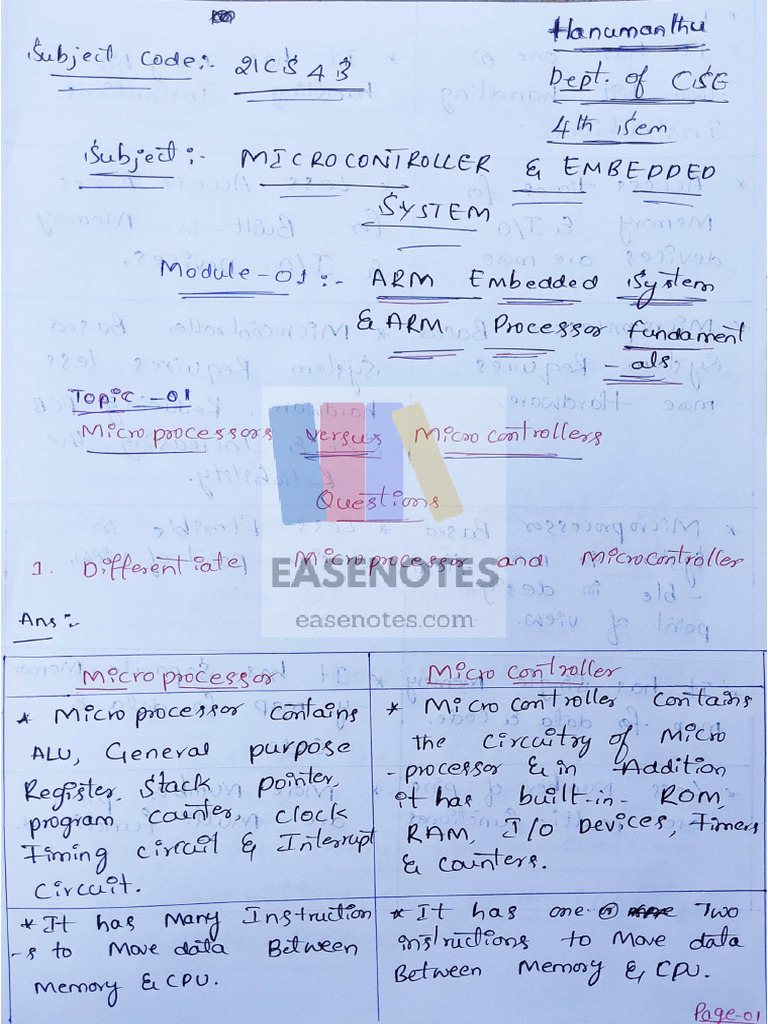 Hanumanthu
Subject Code:- 21CS43
Dept. of CSE
4th Sem
Subject:- MICROCONTROLLER & EMBEDDED
SYSTEM
Module-01:- ARM Embedded System
& ARM Processor fundament
-als
Topic-01
Microprocessors versus Microcontrollers
Questions
1. Differentiate Microprocessor and Microcontroller
EASENOTES
easenotes.com
Ans:-
Microprocessor
* Microprocessor contains
ALU, General purpose
Register, Stack pointer,
program counter, clock
Timing circuit & Interrupt
circuit.
* It has Many Instruction
-s to Move data Between
Memory & CPU.
Micro controller
* Micro controller contains
the circuitry of Micro
-processor & in Addition
it has built-in ROM,
RAM, I/O Devices, Timers
& counters.
* It has one or Two
instructions to Move data
Between Memory & CPU.
Page-01